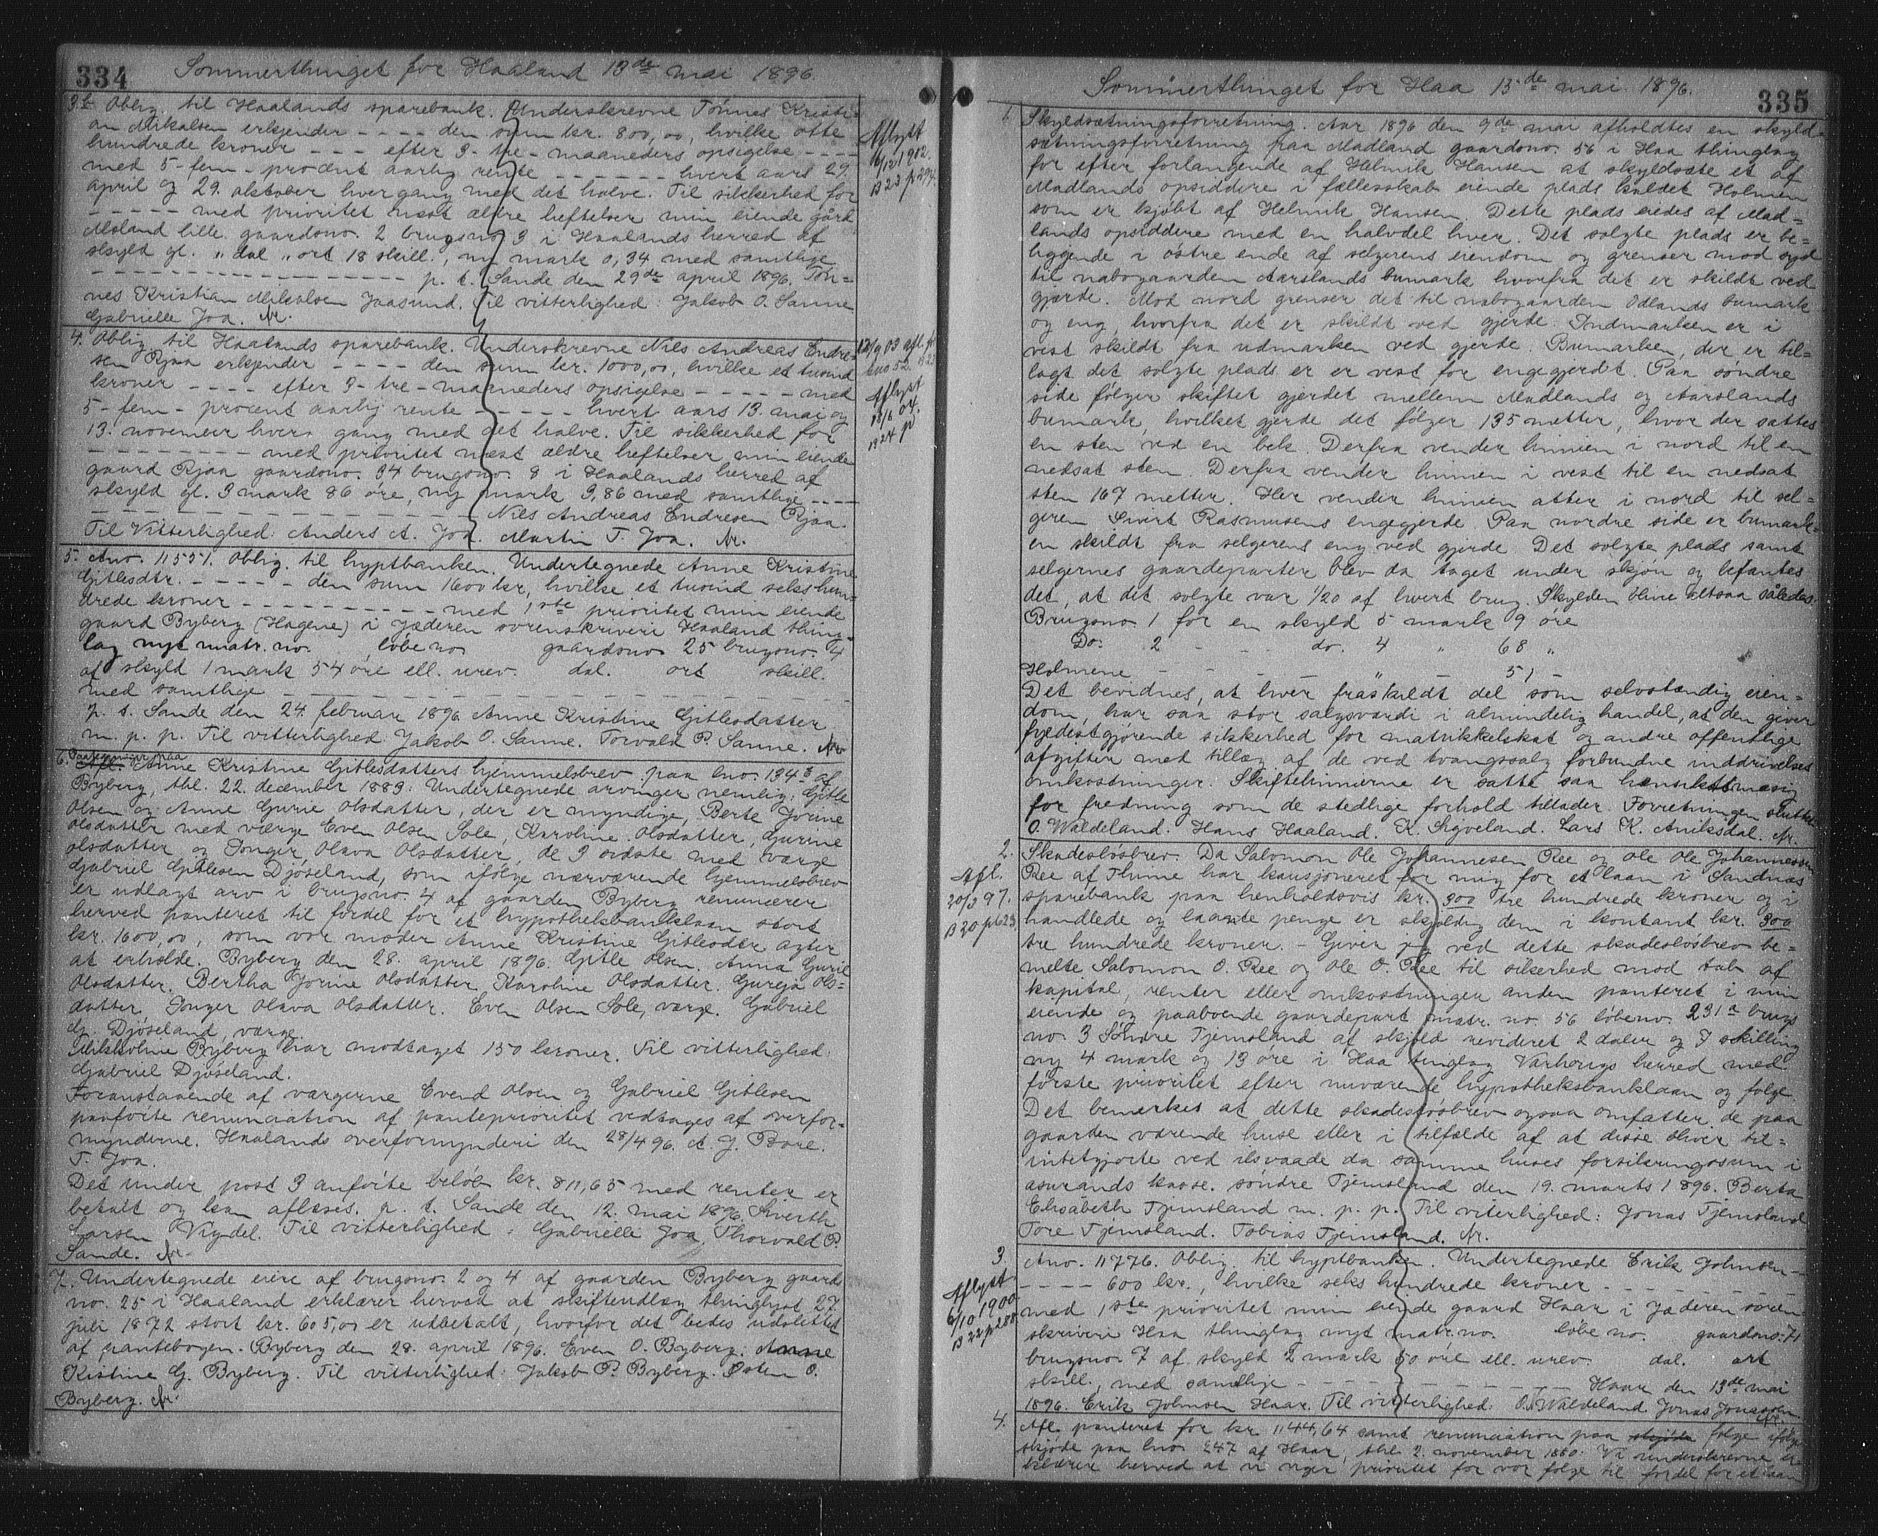 334
Sommerthinget for Haaland 13de mai 1896.
3b Oblig. til Haalands sparebank. Underskrevne Tönnes Kristi-
an Mikalsen erkjender - - - - den sum kr. 800,00, hvilke otte
hundrede kroner - - - efter 3-tre-maaneders opsigelse - - - -
med 5-fem-procent aarlig rente - - - - - - hvert aars 29.
april og 29. oktober hvergang med det halve. Til sikkerhed for
- - - - - med prioritet næst ældre heftelser min eiende gård
Meland lille gaardsno. 2 brugsno. 3 i Haalands herred af
skyld gl. „ dal „ ort 18 skill., ny mark 0,34 med samtlige
- - - - - - - - - - - - p. t. Sande den 29de april 1896. Tön-
nes Kristian Mikalsen Jaasund. Til vitterlighed: Jakob O. Sanne
Gabrielle Joa. Nr.
Aflyst
16/12 1902.
B 23 p 394.
4. Oblig. til Haalands sparebank. Underskrevne Nils Andreas Endre-
sen Rjaa erkjender - - - - den sum kr. 1000,00, hvilke et tusind
kroner - - - - efter 3-tre-maaneders opsigelse - - - - - med
5-fem-procent aarlig rente - - - - - hvert aars 13. mai og
13. november hver gang med det halve. Til sikkerhed for
- - - - - - - - - med prioritet næst ældre heftelser min eiende
gaard Rjaa gaardsno. 34 brugsno. 8 i Haalands herred af
skyld gl. 3 mark 86 öre, ny mark 3,86 med samtlige - - - -
- - - - - - - - - - - - - - - Nils Andreas Endresen Rjaa.
Til Vitterlighed: Anders A. Joa. Martin T. Joa. Nr.
Aflyst
13/6 04.
B 24 p
5. Ano. 11551. Oblig. til hyptbanken. Undertegnede Anne Kristine
Gitlesdtr. - - - - - den sum 1600 kr., hvilke et tusind sekshun-
drede kroner - - - - - - - - - - med 1ste prioritet min eiende
gaard Byberg (Hagene) i Jæderen sorenskriveri Haaland thing-
lag nyt matr. no. löbe no gaardsno. 25 brugsno. 4
af skyld 1 mark 54 öre ell. urev. dal. ort skill.
med samtlige - - - - - - - - - - - - - - - - - -
p. t. Sande den 24. februar 1896 Anne Kristine Gitlesdatter
m. p. p. Til vitterlighed: Jakob O. Sanne. Torvald P. Sanne. Nr
6. Paategninger paa Anne Kristine Gitlesdatters hjemmelsbrev paa lno. 134b af
Byberg, thl. 22. december 1883: Undertegnede arvinger nemlig: Gitle
Olsen og Anne Gurie Olsdatter, der er myndige, Berte Jorine
Olsdatter med værge Even Olsen Sole, Karoline Olsdatter, Gurine
Olsdatter og Inger Olava Olsdatter, de 3 sidste med værge
Gabriel Gitlesen Djöseland, som ifölge nærværende hjemmelsbrev
er udlagt arv i brugsno. 4 af gaarden Byberg renuncerer
herved panteret til fordel for et hypothekbanklaan stort
kr. 1600,00, som vor moder Anne Kristine Gitlesdtr agter
at erholde. Byberg den 28. april 1896. Gitle Olsen. Anna Gurie
Olsdatter. Bertha Jorine Olsdatter. Karoline Olsdatter. Gureja Ols-
datter, Inger Olava Olsdatter. Even Olsen Sole, værge. Gabriel
G. Djöseland, værge.
Mikkoline Byberg har modtaget 150 kroner. Til vitterlighed:
Gabriel Djöseland.
Foranstaaende af værgerne Evend Olsen og Gabriel Gitlesen
paaförte renunciation af panteprioritet vedtages af overfor-
mynderne. Haalands overformynderi den 28/4 96. A. J. Bore.
T. Joa.
Det under post 3 anförte belöb kr. 811,65 med renter er
betalt og kan aflæses. p. t. Sande den 12. mai 1896. Sverth
Larsen Vigdel. Til vitterlighed: Gabrielle Joa, Thorvald P.
Sande. Nr.
7. Undertegnede eiere af brugsno. 2 og 4 af gaarden Byberg gaards
no. 25 i Haaland erklærer herved at skifteudlæg thinglyst 27.
juli 1872 stort kr. 605,00 er udbetalt, hvorfor det bedes udslettet
af pantebogen. Byberg den 28. april 1896. Even O. Byberg. Anne
Kistine G. Byberg. Til vitterlighed: Jakob P. Byberg. Osten O.
Byberg. Nr.
335
Sommerthinget for Haa 13de mai 1896.
1. Skyldsætningsforretning. Aar 1896 den 9de mai afholdtes en skyld-
sætningsforretning paa Madland gaardsno. 56 i Haa thinglag
for efter forlangende af Helmik Hansen at skyldsætte et af
Madlands opsiddere i fællesskab eiende plads kaldet Holmen
som er kjöbt af Helmik Hansen. Dette plads eiedes af Mad-
lands opsiddere med en halvdel hver. Det solgte plads er be-
liggende i östre ende af selgerens eiendom og grenser mod syd
til nabogaarden Aarslands bumark hvorfra det er skildt ved
gjerde. Mod nord grenser det til nabogaarden Odlands bumark
og eng, hvorfra det er skildt ved gjerde. Indmarken er i
vest skildt fra udmarken ved gjerde. Bumarken, der er til-
lagt det solgte plads er er vest for engegjerdet. Paa söndre
side fölger skiftet gjerdet mellem Madlands og Aarslands
bumark, hvilket gjerde det fölger 135 metter, hvor der sattes
en sten ved en bek. Derfra vender linnien i nord til en
nedsat sten. Derfra vender linnien i vest til en nedsat
sten 167 metter. Her vender linnien atter i nord til sel-
geren Sivert Rasmusens engegjerde. Paa nordre side er bumark-
en skildt fra selgerens eng ved gjerde. Det solgte plads samt
selgernes gaardeparter blev da taget under skjön og befantes
det, at det solgte var 1/20 af hvert brug. Skylden blive altsaa således:
Brugsno 1 for en skyld 5 mark 9 öre
Do. 2 - - - do. 4 „ 68 „
Holmene - - - - „ 51 -
Det bevidnes, at hver fraskildt del som selvstændig eien-
dom, har saa stor salgsværdi i almindelig handel, at den giver
fyldestgjörende sikkerhed for matrikkelskat og andre offentlige
afgifter med tillæg af de ved tvangssalg forbundne inddrivelses-
omkostninger. Skiftelinnierne er satte saa hensiktsmæsig
for fredning som de stedlige forhold tillader. Forretningen sluttet
O. Waldeland. Hans Haaland. K. Sigveland. Lars K. Aniksdal. Nr.
2. Skadeslösbrev. Da Salomon Ole Johannesen Ree og Ole Ole Johannesen
Ree af Thime har kausjoneret for mig for et laan i Sandnæs
sparebank paa henholdsvis kr. 300 tre hundrede kroner og i
handlede og laante penge er skyldig dem i kontant kr. 300
tre hundrede kroner. - Giver jeg ved dette skadeslösbrev be-
melte Salomon O. Ree og Ole O. Ree til sikerhed mod tab af
kapital, renter eller omkostninger anden panteret i min
eiende og paaboende gaardepart matr. no. 56 löbeno. 231a brugs
no. 3 Söndre Tjemsland af skjeld revideret 2 daler og 7 skilling
ny 4 mark og 13 öre i Haa tinglag Varhougs herred med
förste prioritet efter nuværende hypotheksbanklaan og fölge.
Det bemerkes at dette skadeslösbrev ogsaa omfatter de paa
gaarden værende huse eller i tilfælde af at disse bliver til-
intetgjorte ved ilsvaade da samme huses forsikringssum i
asurands kasse. söndre Tjemsland den 19. marts 1896. Berta
Elisabeth Tjemsland m. p. p. Til viterlighed: Jonas Tjemsland
Tore Tjemsland. Tobias Tjemsland. Nr.
Afl.
20/3 97.
B 20 p 623
3. Ano. 11776. Oblig. til hyptbanken. Undertegnede Erik Johnsen -
- - - - 600 kr., hvilke seks hundrede kroner - - - - - - -
med 1ste prioritet min eiende gaard Haar i Jæderen soren
skriveri Haa thinglag nyt matr. no. löbe no. gaardsno. 71
brugsno. 7 af skyld 2 mark 50 öre ell. urev. dal. ort
skill., med samtlige - - - - - - - - - - Haar den 13de mai
1896. Erik Johnsen Haar. Til vitterlighed: O. Waldeland. Jonas Jonassen. Nr.
Aflyst
6/10 1900
B 22 p 288
4. Afl. panteret for kr. 1144,64 samt renunciation paa skjöde fölge ifölge
skjöde paa lno. 247 af Haar, thl. 2. november 1880. Vi underskrevne er-
klærer herved at vi viger prioritet for vor fölge til fordel for et laan